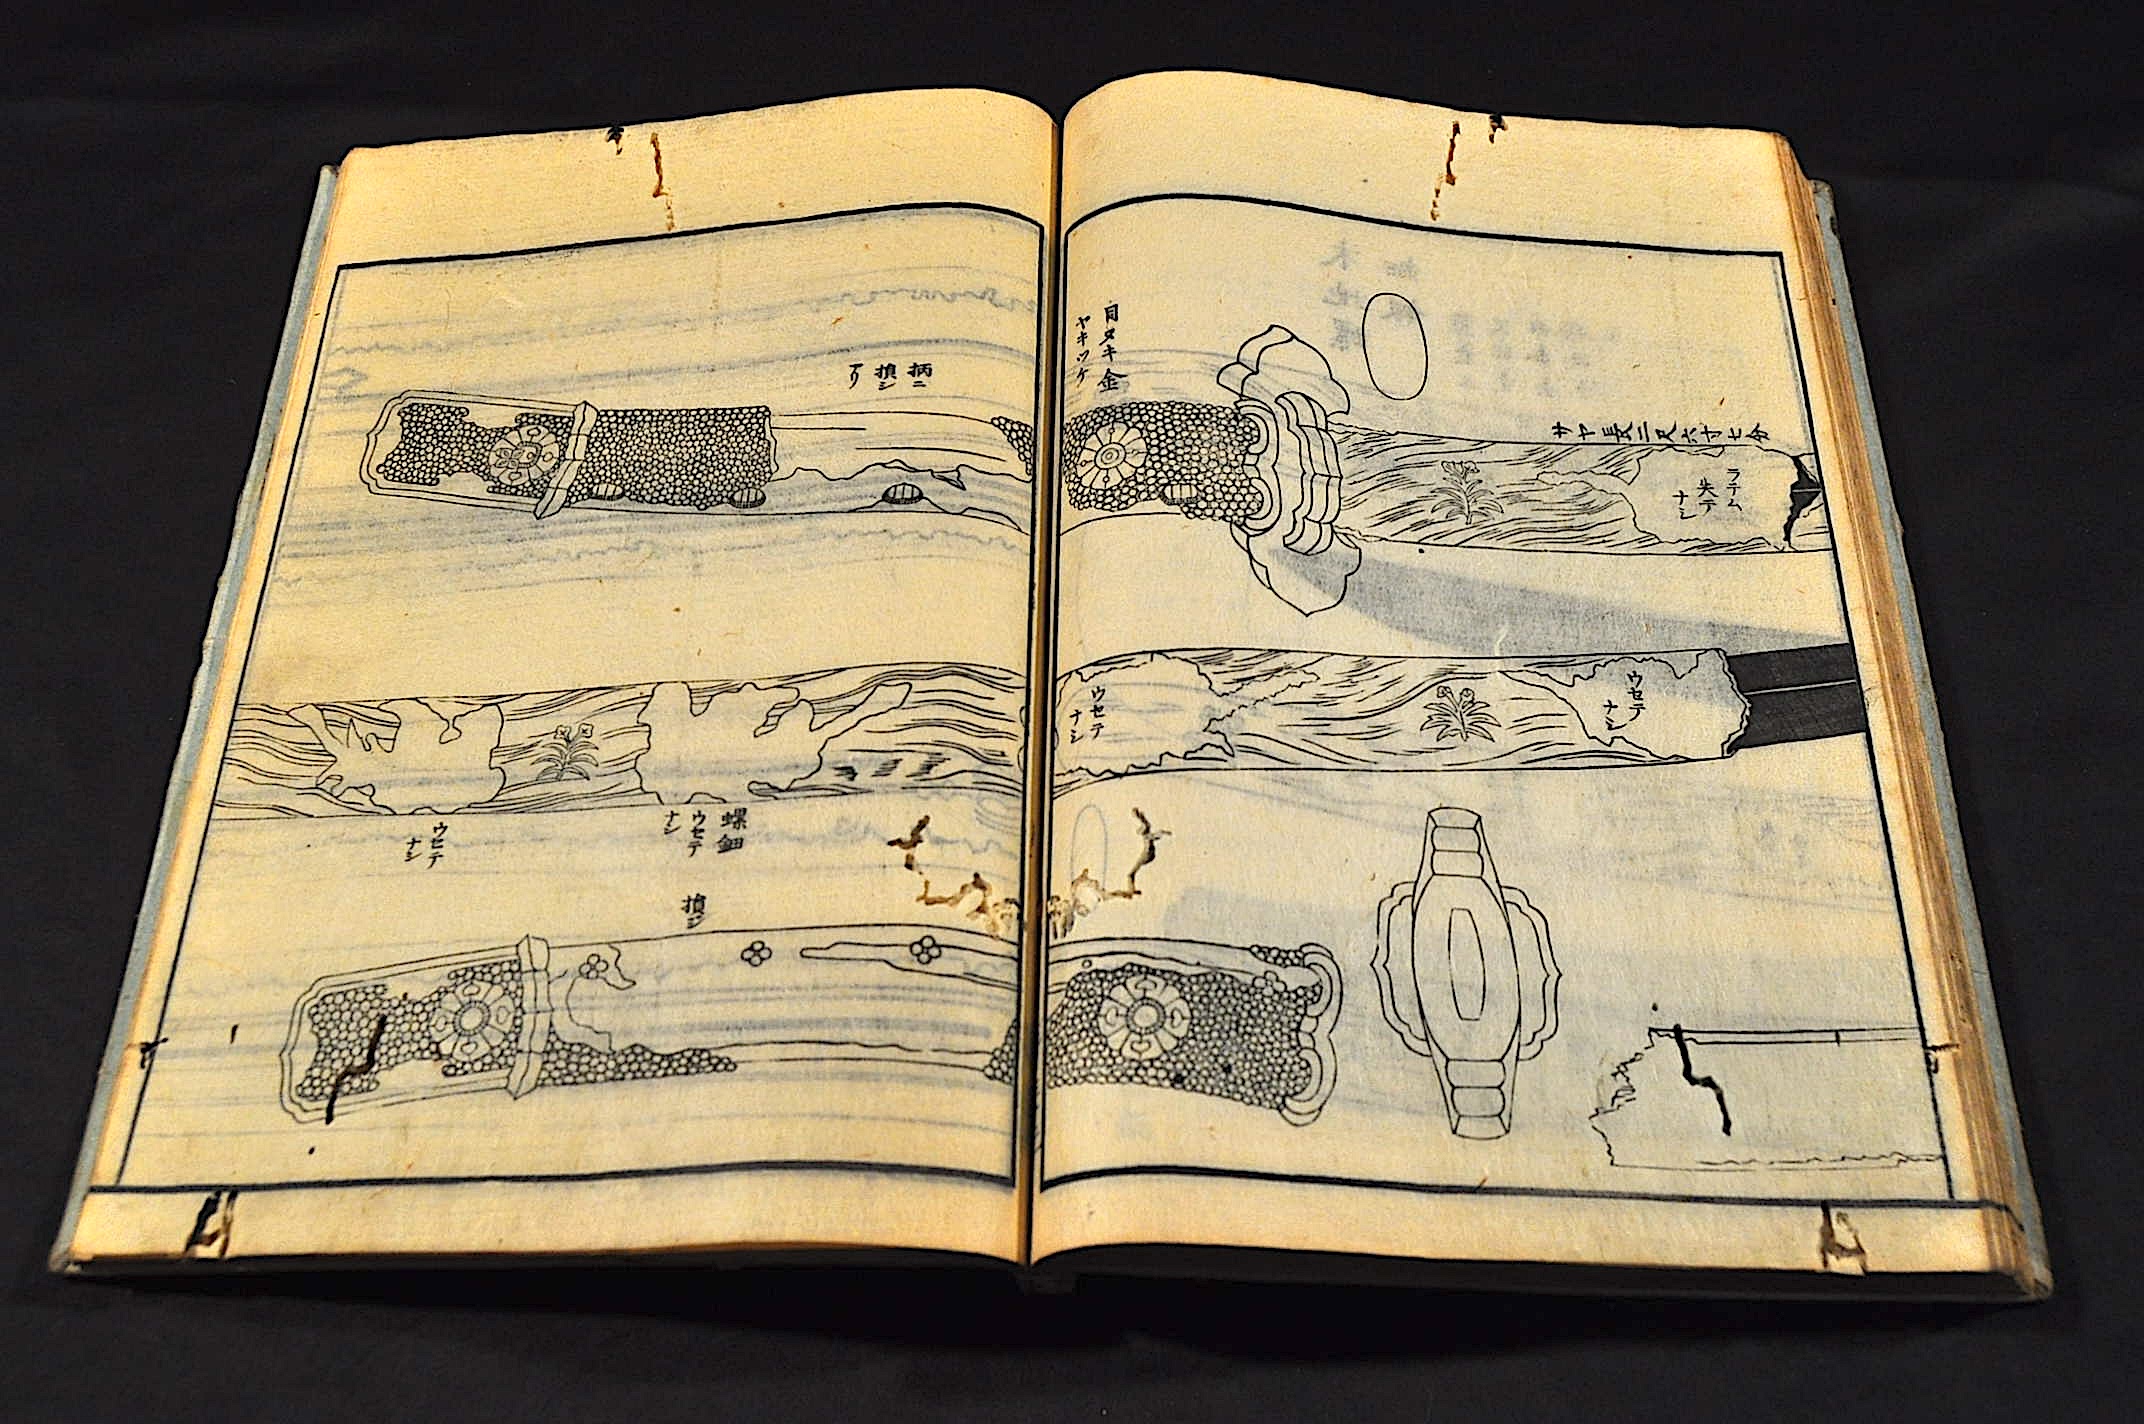 目ヌキ金
ヤキツケ
サヤ長二尺六寸七分
ラデム
失テ
ナシ
ウセテ
ナシ
ウセテ
ナシ
柄ニ
損シ
アリ
螺鈿
ウセテ
ナシ
ウセテ
ナシ
損シ